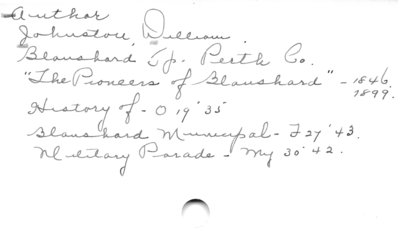 Author
Johnston, William.
Blanshard Tp. Perth Co.
"The Pioneers of Blanshard" - 1846.
1899.
History of - O 19' 35
Blanshard Municipal - F 27' 43.
Military Parade - My 30' 42.